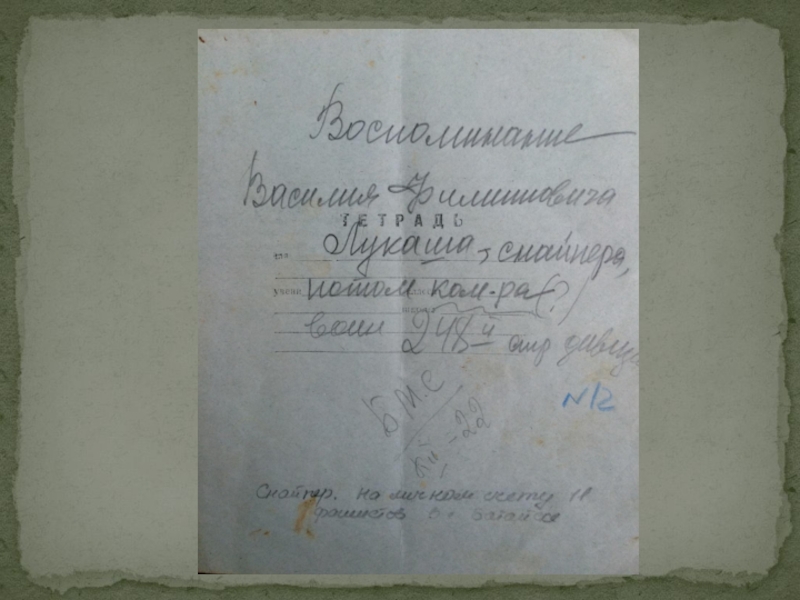 Воспоминание
Василия Филипповича
ТЕТРАДЬ
Лукаша, снайпера,
потом ком-ра (?)
воин 248й стр дивиз
N12
Б М.С
-22
Снайпер. На личном счету 18
фашистов